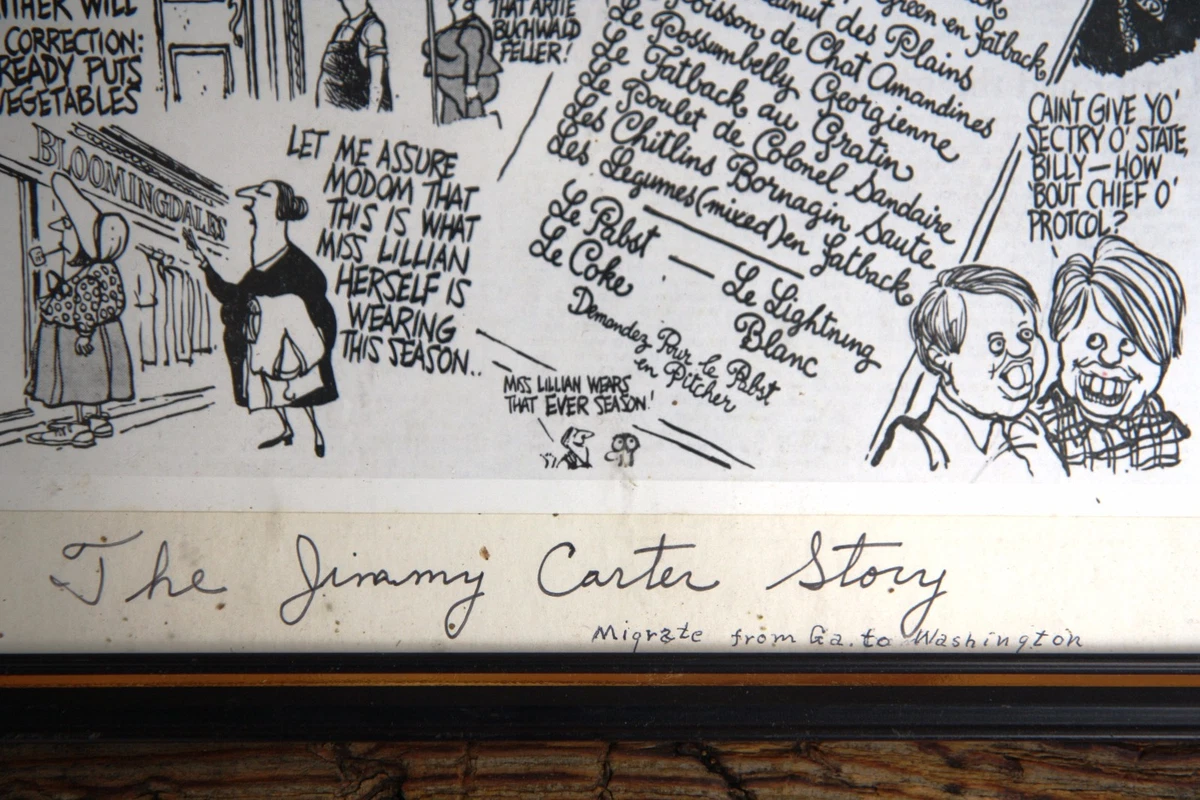 THER WILL
CORRECTION:
READY PUTS
VEGETABLES
THAT ARTIE
BUCHWALD
FELLER!
green en fatback
Peanut des Plains
Poisson de Chat Amandines
Le Possumbelly Georgienne
Le Fatback au Gratin
Le Poulet de Colonel Sandaire
Les Chitlins Bornagin Saute
Les Legumes (mixed) en fatback
Le Pabst — Le Lightning
Le Coke Blanc
Demandez Pour le Pabst
en Pitcher
CAIN'T GIVE YO'
SECTRY O' STATE,
BILLY — HOW
'BOUT CHIEF O'
PROTCOL?
BLOOMINGDALES
LET ME ASSURE
MODOM THAT
THIS IS WHAT
MISS LILLIAN
HERSELF IS
WEARING
THIS SEASON..
MISS LILLIAN WEARS
THAT EVER SEASON!
The Jimmy Carter Story
Migrate from Ga. to Washington